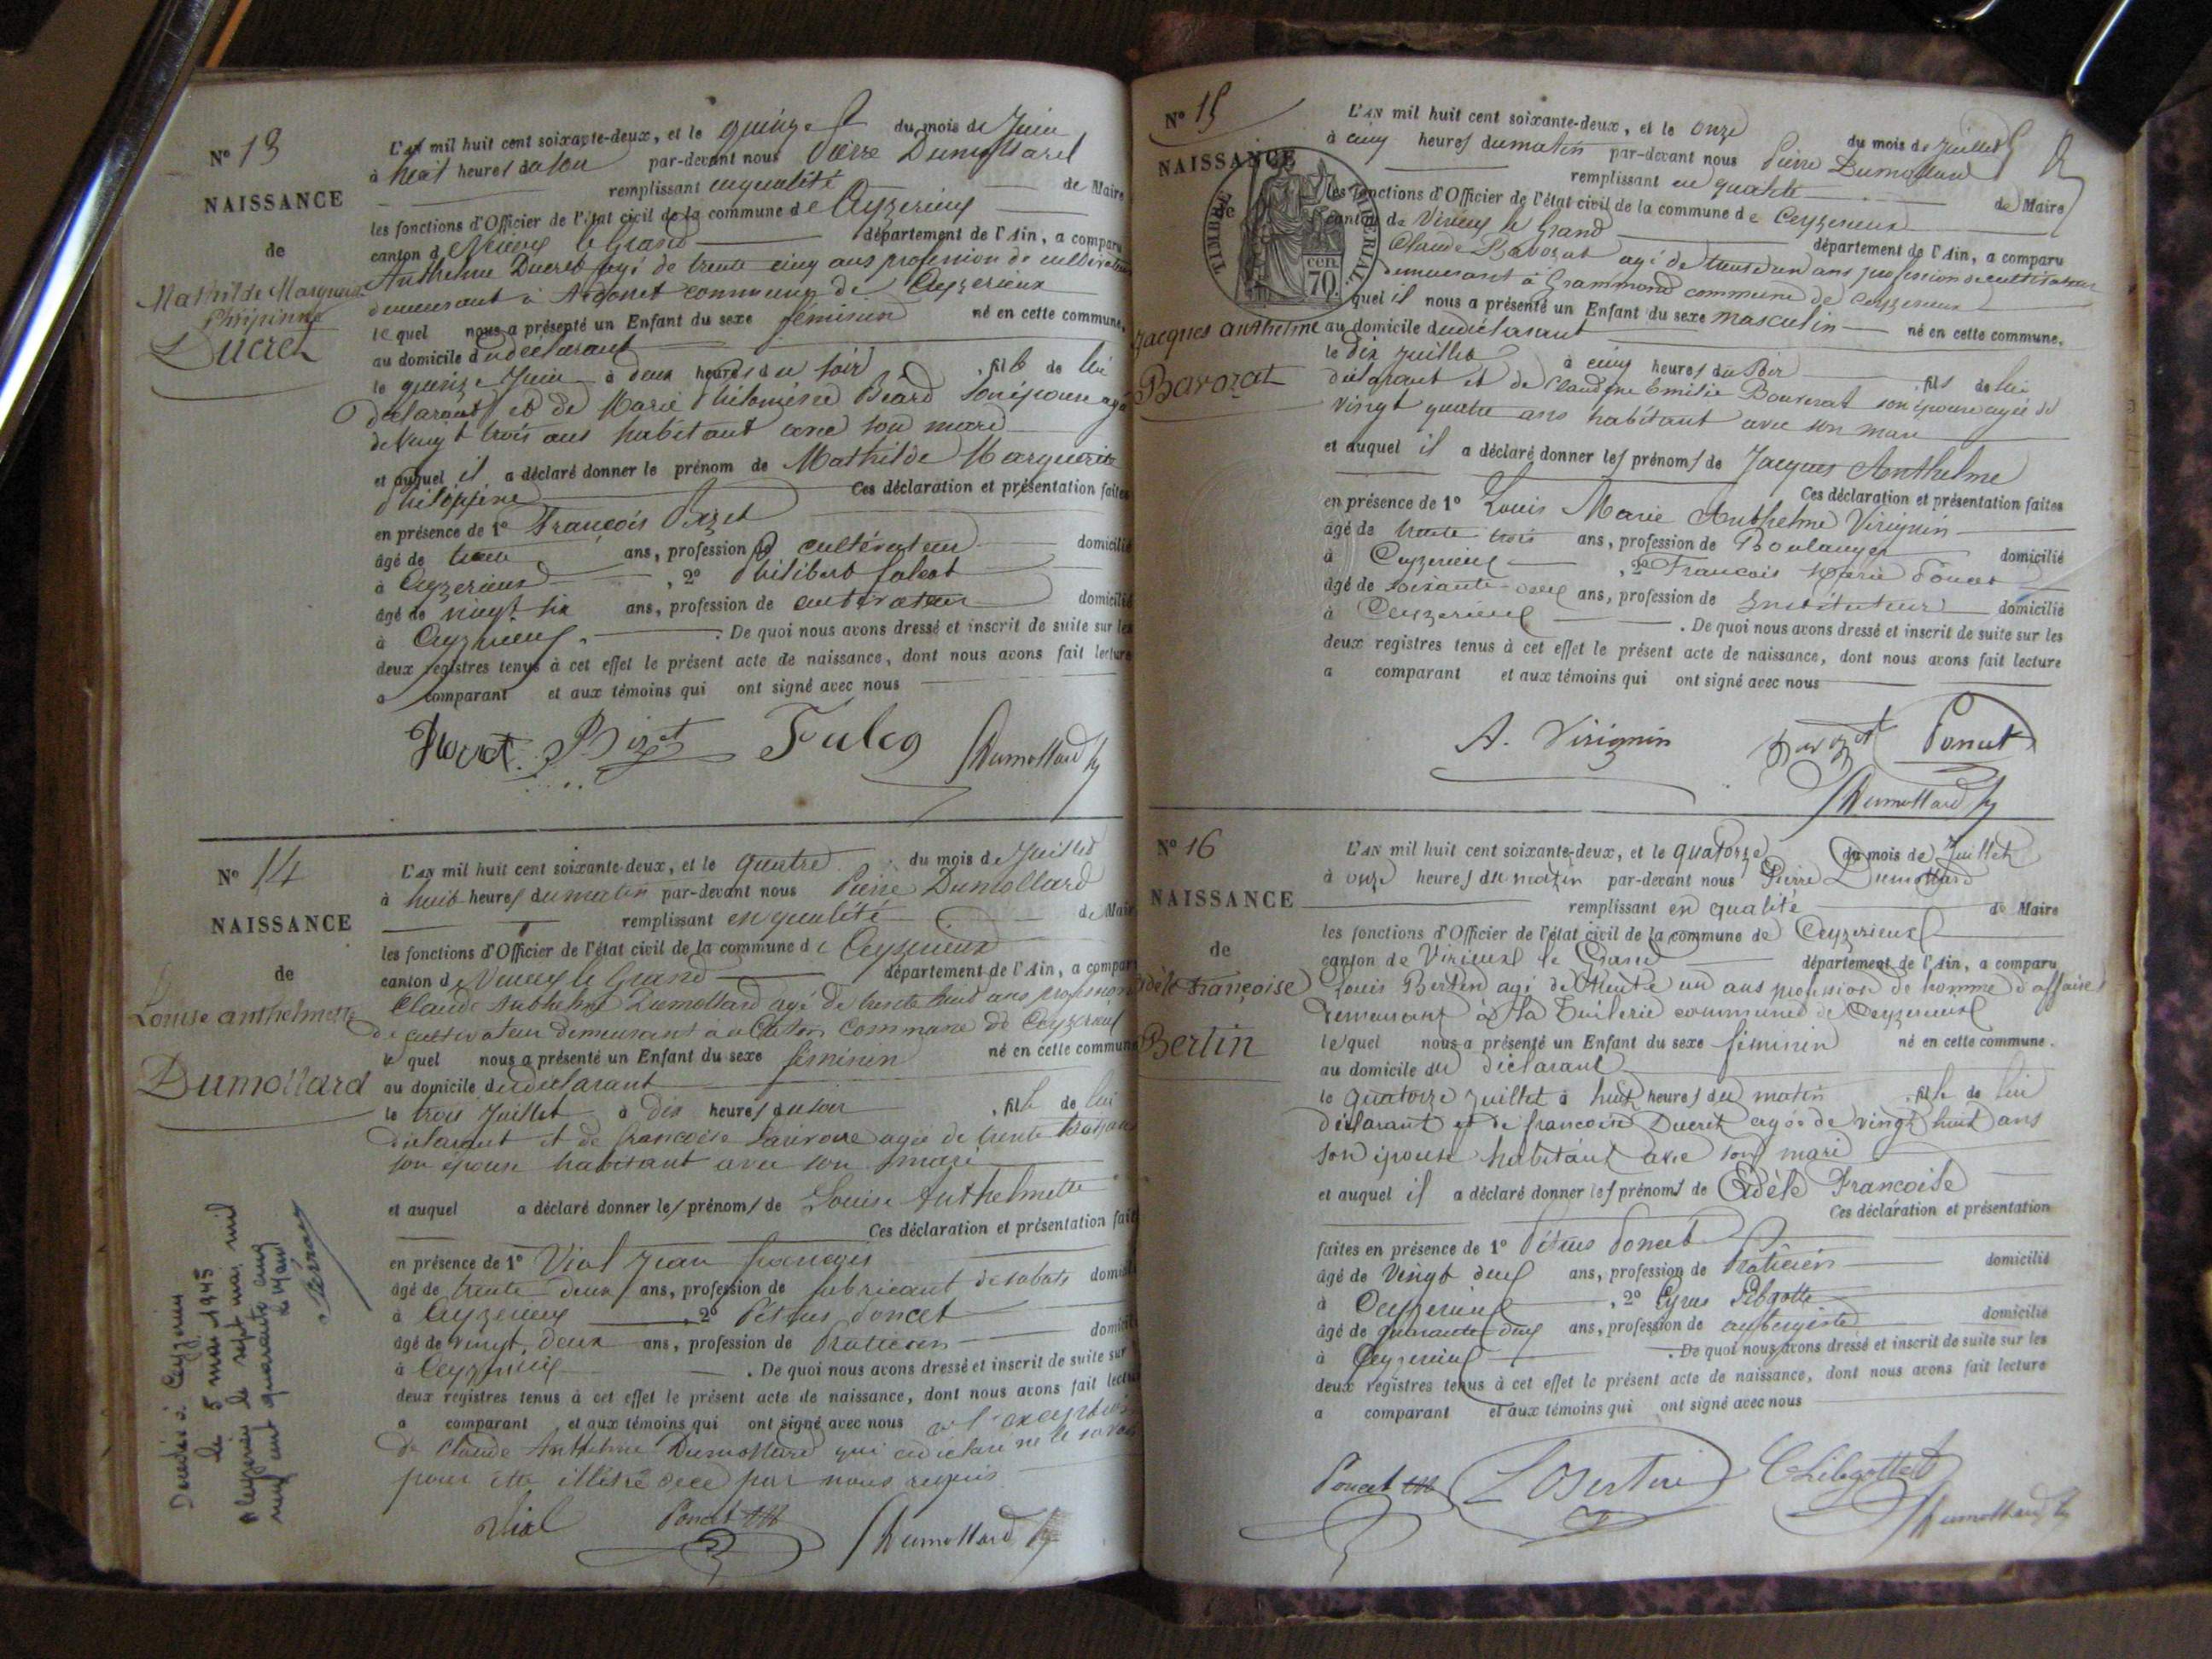 N° 13
NAISSANCE
de
Mathilde Marguerite
Philippine
Ducret
L'AN mil huit cent soixante-deux, et le quinze du mois de Juin
à huit heures du soir par-devant nous Pierre Dumollard
remplissant en qualité de Maire
les fonctions d'Officier de l'état civil de la commune de Ceyzerieux
canton de Virieux le Grand département de l'Ain, a comparu
Anthelme Ducret agé de trente cinq ans profession de cultivateur
demeurant à Ardonet commune de Ceyzerieux
lequel nous a présenté un Enfant du sexe féminin né en cette commune,
au domicile du déclarant
le quinze Juin à deux heures du soir , fille de lui
déclarant et de Marie Philomène Béard son épouse agée
de vingt trois ans habitant avec son mari
et auquel il a déclaré donner le prénom de Mathilde Marguerite
Philippine Ces déclaration et présentation faites
en présence de 1° François Bizet
âgé de trente ans, profession de cultivateur domicilié
à Ceyzerieux , 2° Philibert
âgé de vingt six ans, profession de cultivateur domicilié
à Ceyzerieux . De quoi nous avons dressé et inscrit de suite sur les
deux registres tenus à cet effet le présent acte de naissance, dont nous avons fait lecture
a comparant et aux témoins qui ont signé avec nous
Bizet Dumollard
N° 14
NAISSANCE
de
Louise anthelmette
Dumollard
L'AN mil huit cent soixante-deux, et le quatre du mois de Juillet
à huit heures du matin par-devant nous Pierre Dumollard
remplissant en qualité de Maire
les fonctions d'Officier de l'état civil de la commune de Ceyzerieux
canton de Virieux le Grand département de l'Ain, a comparu
Claude Anthelme Dumollard agé de trente huit ans profession
de cultivateur demeurant à commune de Ceyzerieux
lequel nous a présenté un Enfant du sexe féminin né en cette commune
au domicile du déclarant
le trois Juillet à dix heures du soir , fille de lui
déclarant et de françoise agée de trente ans
son épouse habitant avec son mari
et auquel a déclaré donner les prénoms de Louise Anthelmette
Ces déclaration et présentation faites
en présence de 1° Vial Jean françois
âgé de trente deux ans, profession de fabricant de sabots domicilié
à Ceyzerieux , 2° Petrus Poncet
âgé de vingt deux ans, profession de Praticien domicilié
à Ceyzerieux . De quoi nous avons dressé et inscrit de suite sur
deux registres tenus à cet effet le présent acte de naissance, dont nous avons fait lecture
a comparant et aux témoins qui ont signé avec nous à l'exception
de Claude Anthelme Dumollard qui a déclaré ne le savoir
pour être illétré de ce par nous requis
Vial Poncet Dumollard
Décédée à Ceyzerieu
le 5 mai 1945
Ceyzerieu le sept mai mil
neuf cent quarante cinq
Le Maire
N° 15
NAISSANCE
de
Jacques anthelme
Bavozat
TIMBRE IMPÉRIAL
70 cen
L'AN mil huit cent soixante-deux, et le onze du mois de Juillet
à cinq heures du matin par-devant nous Pierre Dumollard
remplissant en qualité de Maire
les fonctions d'Officier de l'état civil de la commune de Ceyzerieux
canton de Virieux le Grand département de l'Ain, a comparu
Claude Bavozat agé de trente un ans profession de cultivateur
demeurant à Grammond commune de Ceyzerieux
quel il nous a présenté un Enfant du sexe masculin né en cette commune,
au domicile du déclarant
le dix Juillet à cinq heures du soir , fils de lui
déclarant et de Claudine Emilie son épouse agée de
vingt quatre ans habitant avec son mari
et auquel il a déclaré donner les prénoms de Jacques Anthelme
Ces déclaration et présentation faites
en présence de 1° Louis Marie Anthelme Virignin
âgé de trente trois ans, profession de Boulanger domicilié
à Ceyzerieux , 2° François Marie Poncet
âgé de soixante deux ans, profession de Instituteur domicilié
à Ceyzerieux . De quoi nous avons dressé et inscrit de suite sur les
deux registres tenus à cet effet le présent acte de naissance, dont nous avons fait lecture
a comparant et aux témoins qui ont signé avec nous
A. Virignin Bavozat Poncet
Dumollard
N° 16
NAISSANCE
de
adèle Françoise
Bertin
L'AN mil huit cent soixante-deux, et le quatorze du mois de Juillet
à onze heures du matin par-devant nous Pierre Dumollard
remplissant en qualité de Maire
les fonctions d'Officier de l'état civil de la commune de Ceyzerieux
canton de Virieux le Grand département de l'Ain, a comparu
Louis Bertin agé de trente un ans profession de homme d'affaires
demeurant à la Tuilerie commune de Ceyzerieux
lequel nous a présenté un Enfant du sexe féminin né en cette commune.
au domicile du déclarant
le quatorze juillet à huit heures du matin , fille de lui
déclarant et de françoise Ducret agée de vingt huit ans
son épouse habitant avec son mari
et auquel il a déclaré donner les prénoms de Adèle Françoise
Ces déclaration et présentation
faites en présence de 1° Pétrus Poncet
âgé de vingt deux ans, profession de Praticien domicilié
à Ceyzerieux , 2° Cyrus
âgé de quarante deux ans, profession de aubergiste domicilié
à Ceyzerieux . De quoi nous avons dressé et inscrit de suite sur les
deux registres tenus à cet effet le présent acte de naissance, dont nous avons fait lecture
a comparant et aux témoins qui ont signé avec nous
Poncet L Bertin Dumollard